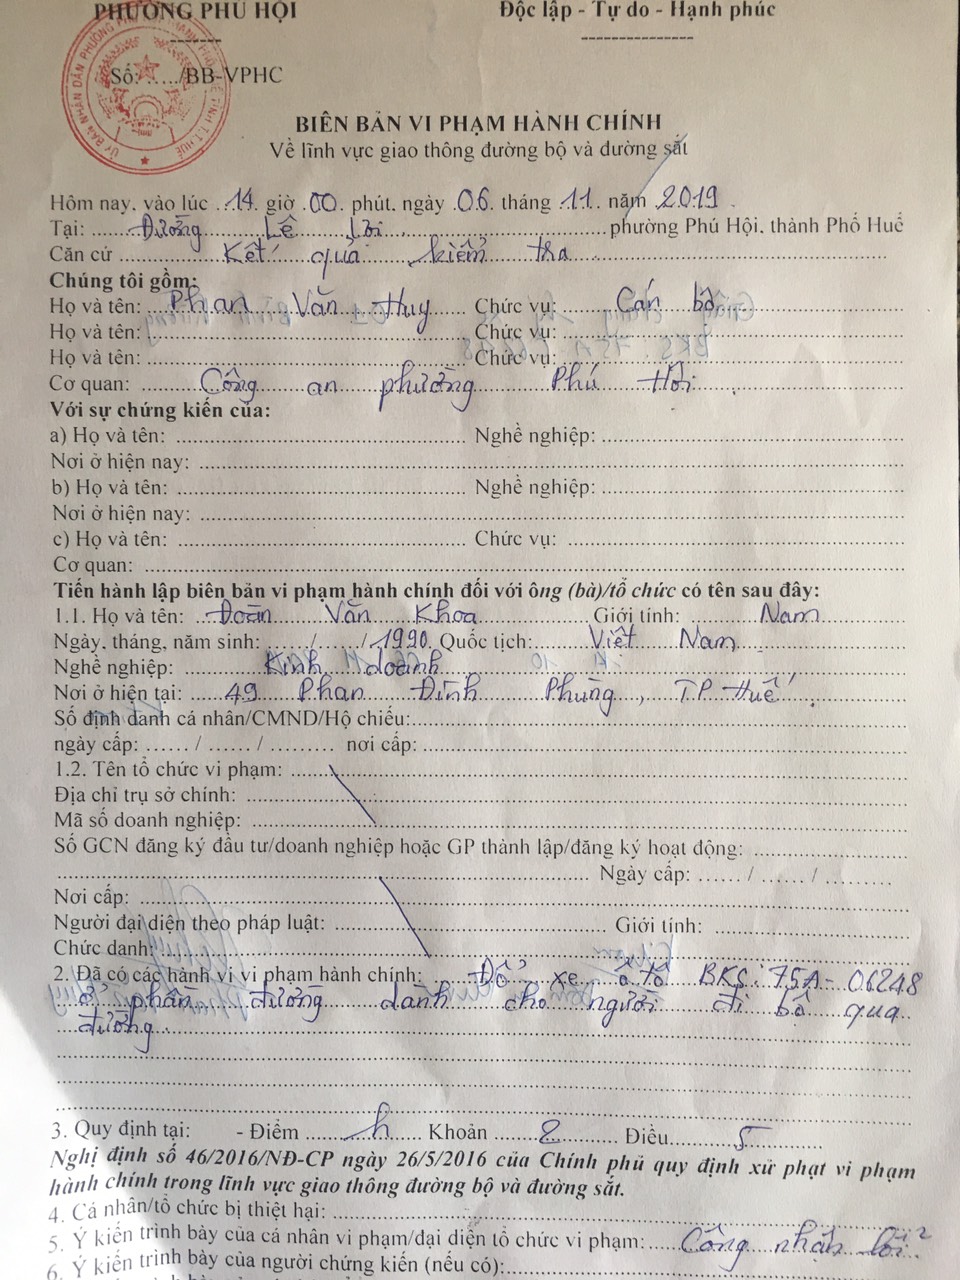 PHƯỜNG PHÚ HỘI
Độc lập - Tự do - Hạnh phúc
Số: ...../BB-VPHC
BIÊN BẢN VI PHẠM HÀNH CHÍNH
Về lĩnh vực giao thông đường bộ và đường sắt
Hôm nay, vào lúc 14 giờ 00 phút, ngày 06 tháng 11 năm 2019
Tại: Đường Lê Lợi phường Phú Hội, thành Phố Huế
Căn cứ Kết quả kiểm tra
Chúng tôi gồm:
Họ và tên: Phan Văn Huy Chức vụ: Cán bộ
Họ và tên: Chức vụ:
Họ và tên: Chức vụ:
Cơ quan: Công an phường Phú Hội
Với sự chứng kiến của:
a) Họ và tên: Nghề nghiệp:
Nơi ở hiện nay:
b) Họ và tên: Nghề nghiệp:
Nơi ở hiện nay:
c) Họ và tên: Chức vụ:
Cơ quan:
Tiến hành lập biên bản vi phạm hành chính đối với ông (bà)/tổ chức có tên sau đây:
1.1. Họ và tên: Đoàn Văn Khoa Giới tính: Nam
Ngày, tháng, năm sinh: ....../....../1990 Quốc tịch: Việt Nam
Nghề nghiệp: Kinh doanh
Nơi ở hiện tại: 49 Phan Đình Phùng, TP Huế
Số định danh cá nhân/CMND/Hộ chiếu:
ngày cấp: ...... / ...... / ......... nơi cấp:
1.2. Tên tổ chức vi phạm:
Địa chỉ trụ sở chính:
Mã số doanh nghiệp:
Số GCN đăng ký đầu tư/doanh nghiệp hoặc GP thành lập/đăng ký hoạt động:
Ngày cấp: ...... / ...... / .........
Nơi cấp:
Người đại diện theo pháp luật: Giới tính:
Chức danh:
2. Đã có các hành vi vi phạm hành chính: Đỗ xe ô tô BKS: 75A-06248
ở phần đường dành cho người đi bộ qua
đường
3. Quy định tại: - Điểm h Khoản 2 Điều 5
Nghị định số 46/2016/NĐ-CP ngày 26/5/2016 của Chính phủ quy định xử phạt vi phạm
hành chính trong lĩnh vực giao thông đường bộ và đường sắt.
4. Cá nhân/tổ chức bị thiệt hại:
5. Ý kiến trình bày của cá nhân vi phạm/đại diện tổ chức vi phạm: Công nhận lỗi
6. Ý kiến trình bày của người chứng kiến (nếu có):